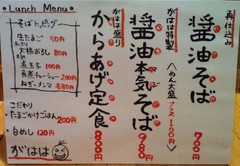 再仕込み
醤油そば
700円
がはは特製
醤油本気そば
980円
(めん大盛プラス100円)
がはは盛り
からあげ定食
Lunch Menu
生たまご 50円
大根おろし 80円
煮玉子 100円
角煮チャーシュー 200円
ねぎ・メンマ 各80円
こだわり
たまごかけごはん 200円
白めし 120円
がはは